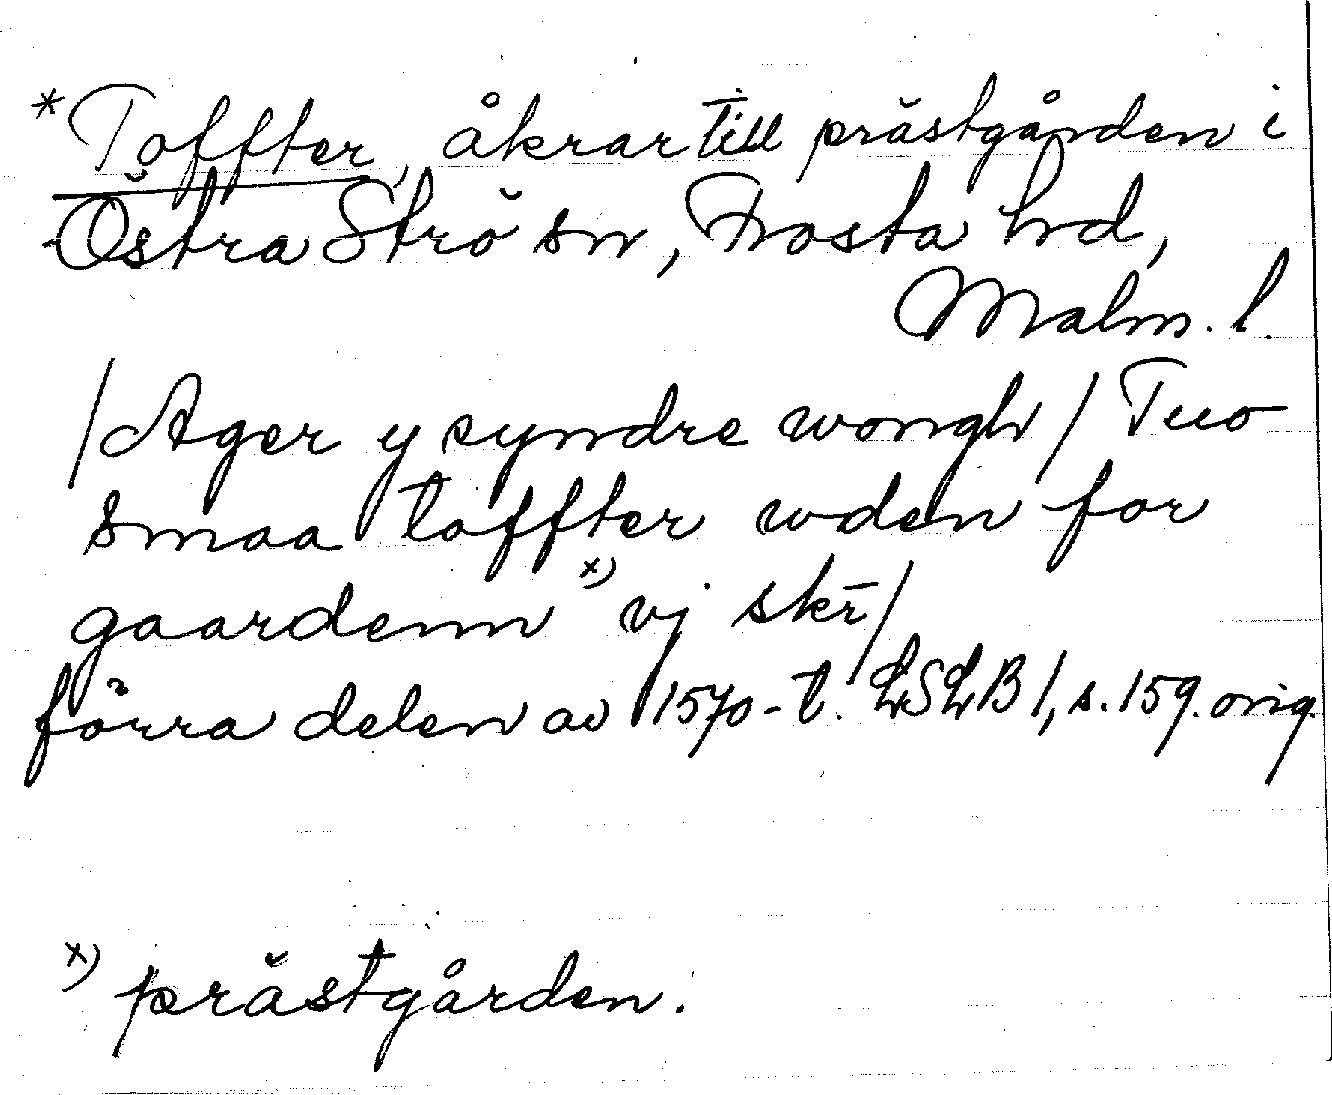 *Toffter, åkrar till prästgården i
Östra Strö sn, Frosta hd,
Malm. l.
/Ager y syndre wongh/ Tuo
smaa toffter wden for
gaardenn x) vj skr̄/
förra delen av 1570-t. LSLB I, s. 159. orig.
x) prästgården.